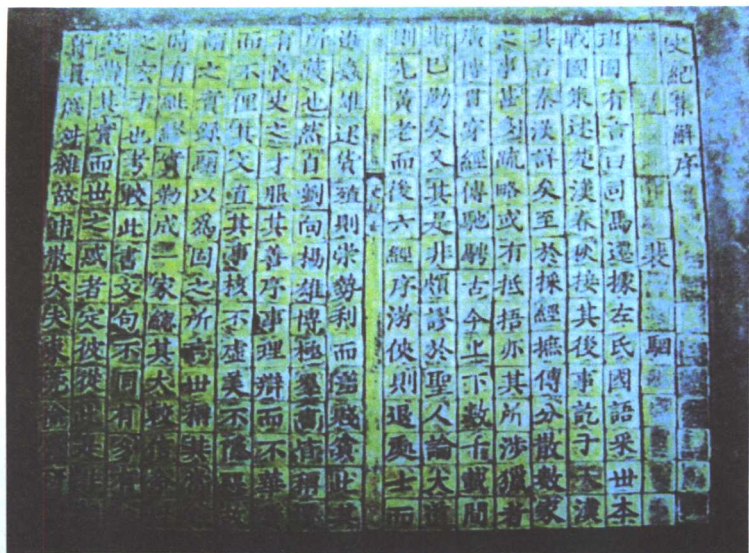 史紀集解序
裴駰
班固有言曰司馬遷據左氏國語采世本
戰國策述楚漢春秋接其後事訖于天漢
其言秦漢詳矣至於採經摭傳分散數家
之事甚多疏略或有抵捂亦其所涉獵者
廣博貫穿經傳馳騁古今上下數千載間
斯已勤矣又其是非頗謬於聖人論大道
則先黃老而後六經序游俠則退處士而
進姦雄述貨殖則崇勢利而羞賤貧此其
所蔽也然自劉向楊雄博極羣書皆稱
有良史之才服其善序事理辯而不華
而不俚其文直其事核不虛美不隱惡故
謂之實錄駰以為固之所言世稱其當
時有紕繆實勒成一家總其大較信命
之宏才也考較此書文句不同有多有
莫辯其實而世之惑者定彼從此是非
貿真偽舛雜故中散大夫東莞徐